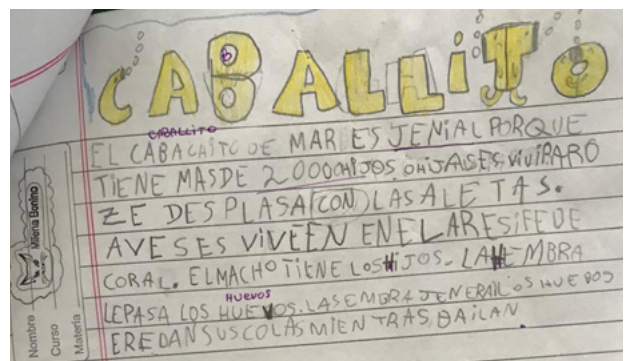 CABALLITO
CABALLITO
EL CABACHITO DE MAR ES JENIAL PORQUE
TIENE MASDE 2000HIJOS OHIJAS.ES, VIVIPARO
ZE DESPLASA CON LAS ALETAS.
AVESES VIVEEN ENELARESIFEDE
CORAL. ELMACHO TIENE LOSHIJOS. LAHEMBRA
HUEVOS
LEPASA LOS HUEVOS. LASEMBRA JENERAILOS HUEVOS
EREDAN SUS COLAS MIENTRAS, BAILAN
Nombre Milena Bonino
Curso
Materia